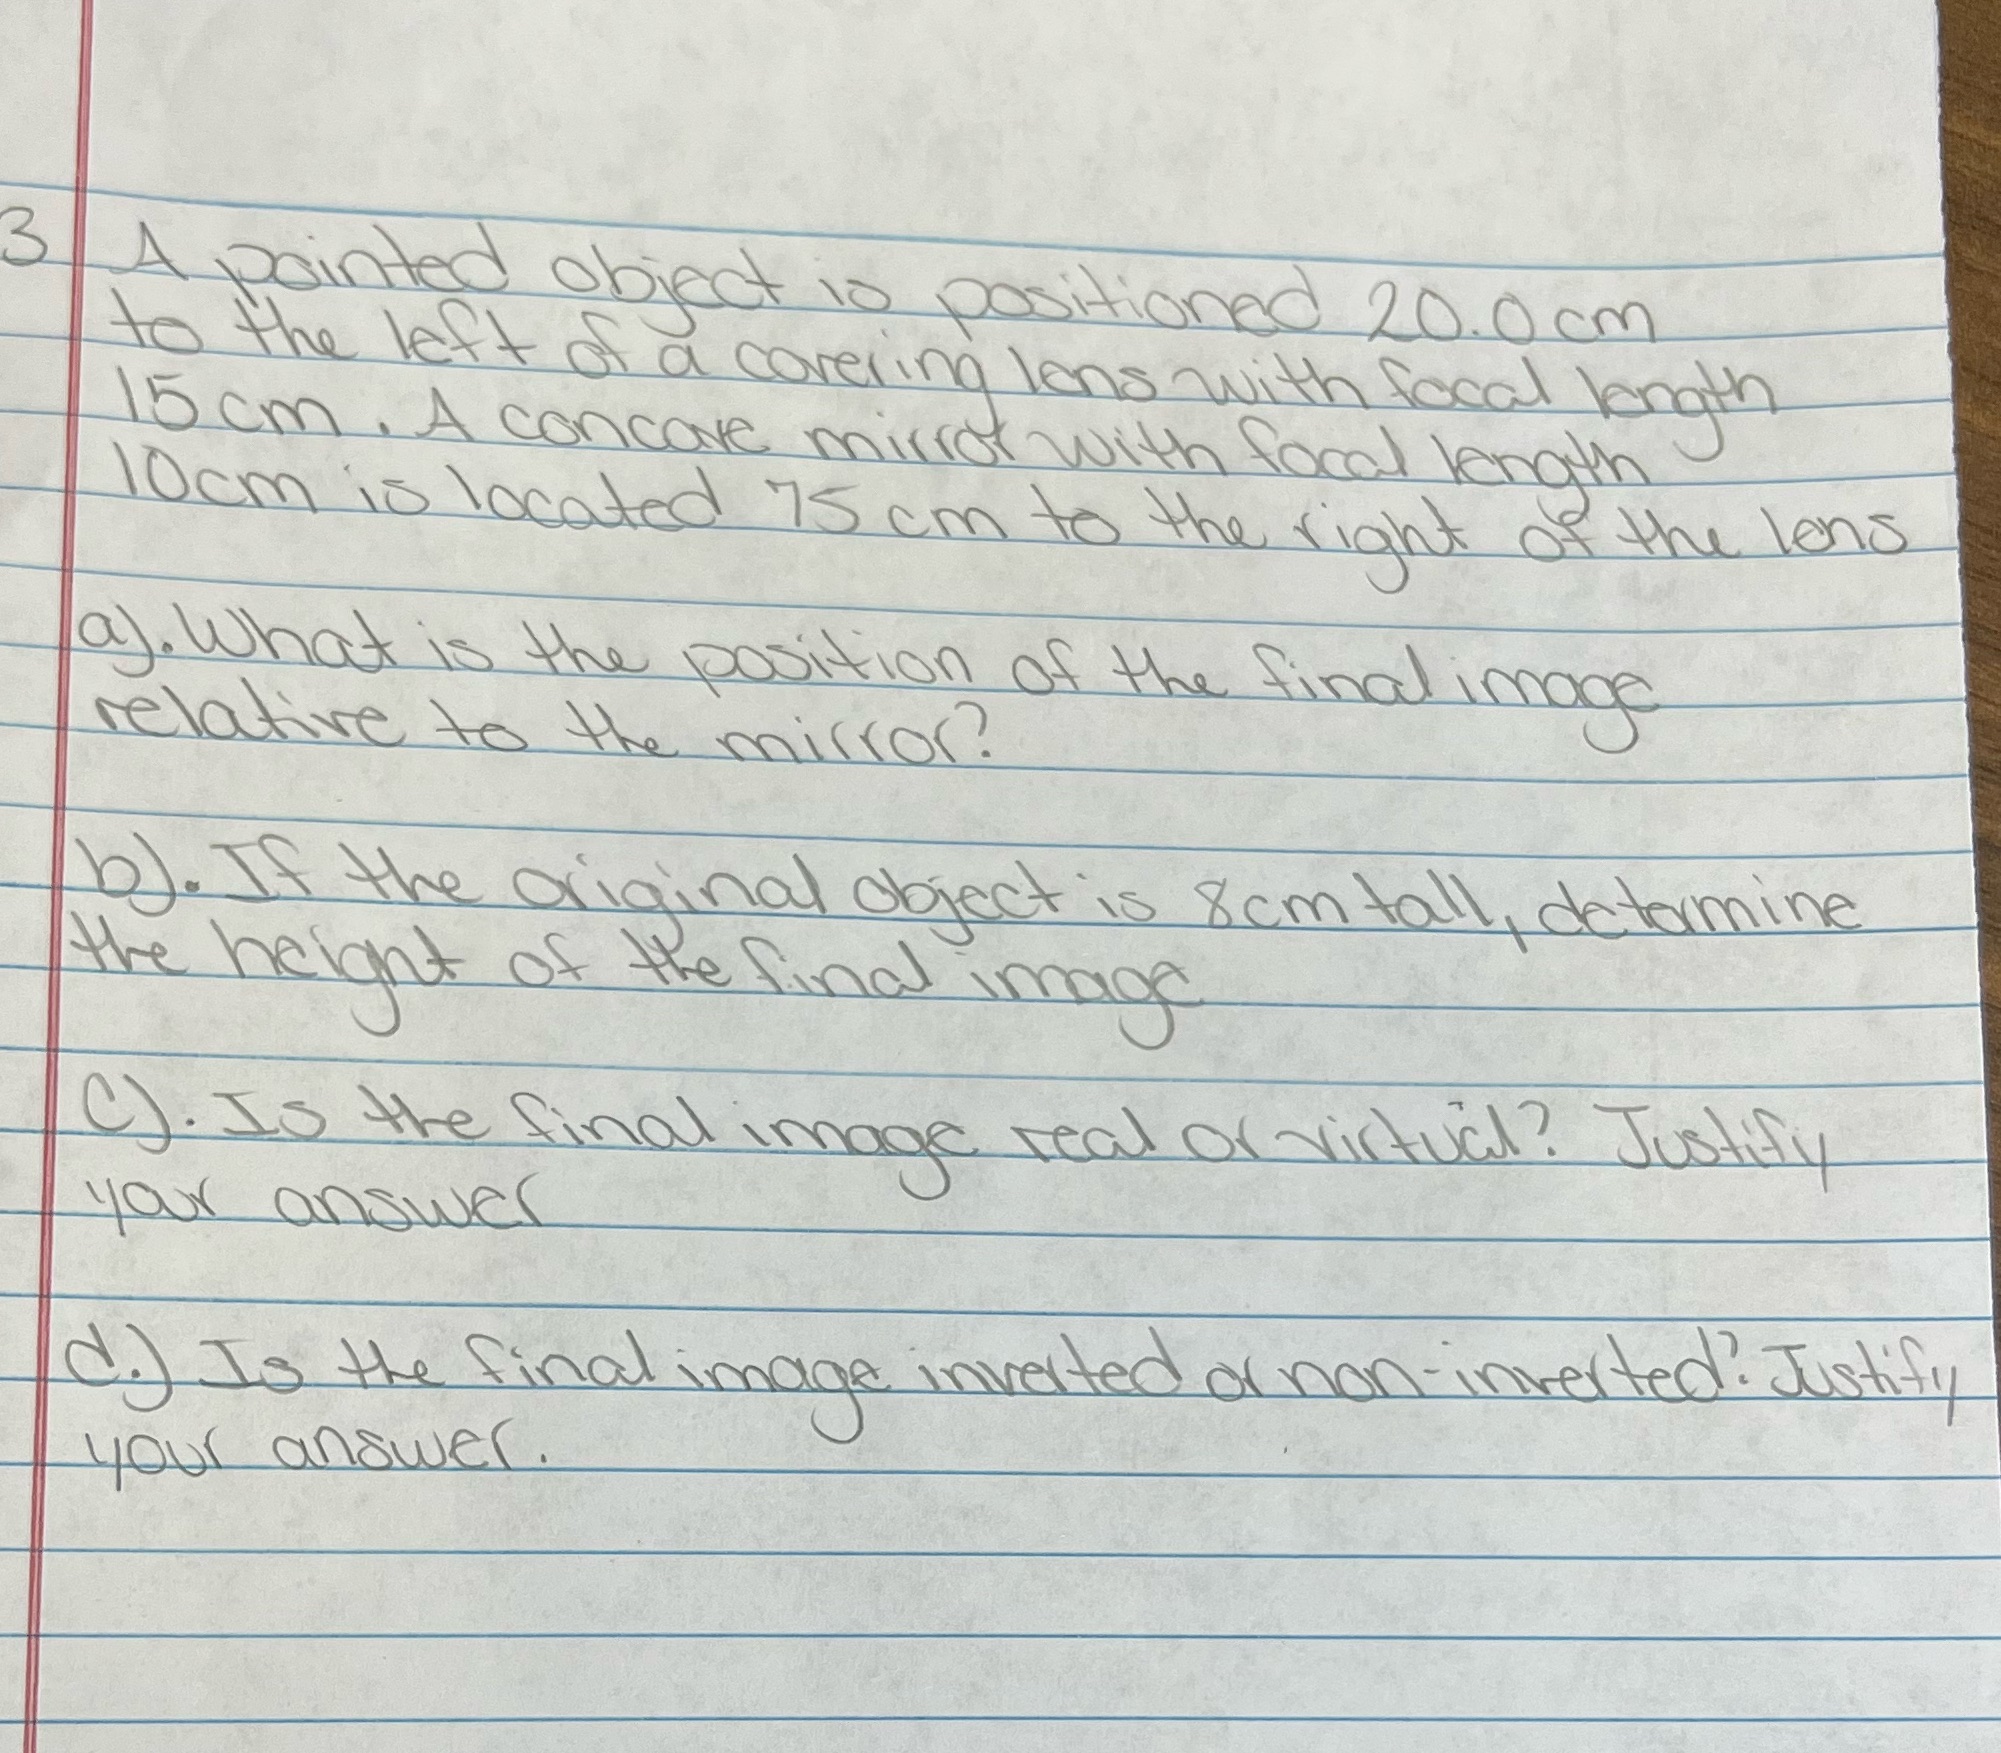 3 A pointed object is positioned 20.0 cm
to the left of a covering lens with focal length
15 cm. A concave mirror with focal length
10cm is located 75 cm to the right of the lens
a). What is the position of the final image
relative to the mirror?
b). If the original object is 8cm tall, determine
the height of the final image
C). Is the final image real or virtual? Justify
your answer
d.) Is the final image inverted or non-inverted? Justify
your answer.